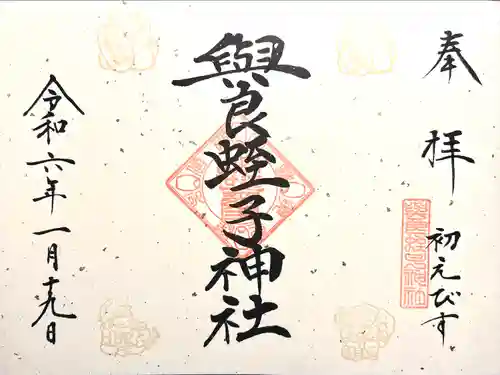 奉拝
初えびす。
與良蛭子神社
令和六年一月十九日